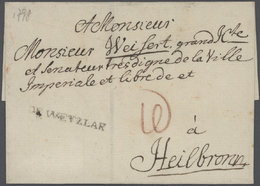 1798
A Monsieur
Monsieur Weisert, grand
et Senateur tres digne de la Ville
Imperiale et libre de et
DE WETZLAR
à
Heilbronn